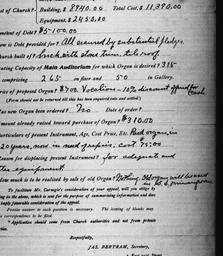 Building, $8940.00 Total Cost, $11,390.00
Equipment, $2450.00
ment of Debt? $5100.00
is Debt Provided for? All secured by substantial pledges.
urch built of? Brick with stone trim, tile roof
ating Capacity of Main Auditorium for which Organ is desired? 315
comprising 265 on floor and 50 in Gallery.
rice of proposed Organ? $700. Vocalion - 10% discount for cash
(Form should not be returned till this has been enquired into and settled.)
as new Organ been ordered? No Date of order?
mount already raised toward purchase of Organ? $310.00
articulars of present Instrument, Age, Cost Price, Etc. Reed organ, in
20 years, now in need of repairs, cost $75.00
Reason for displacing present Instrument? for adequate and
equipment.
ow much is to be realized by sale of old Organ? Nothing. Old organ will be used
in S.S. primary room
To facilitate Mr. Carnegie's consideration of your appeal, will you oblige by
ing in the above, which is sent for the purpose of summarizing information and does not
imply favorable consideration of the appeal.
Precise answer to each question is necessary. The issuing of blanks may
no correspondence to be filed.
Application should come from Church authorities and not from private
Respectfully,
JAS. BERTRAM, Secretary,